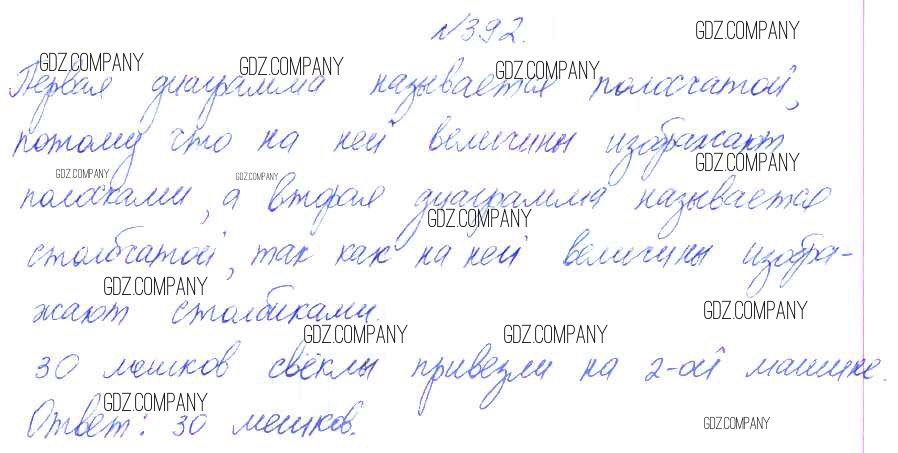 №392.
GDZ.COMPANY
GDZ.COMPANY GDZ.COMPANY GDZ.COMPANY
Первая диаграмма называется полосчатой,
потому что на ней величины изображают
GDZ.COMPANY
GDZ.COMPANY GDZ.COMPANY
полосками, а вторая диаграмма называется
GDZ.COMPANY
столбчатой, так как на ней величины изобра-
GDZ.COMPANY
жают столбиками.
GDZ.COMPANY
GDZ.COMPANY GDZ.COMPANY
30 мешков свёклы привезли на 2-ой машине.
GDZ.COMPANY
Ответ: 30 мешков.
GDZ.COMPANY